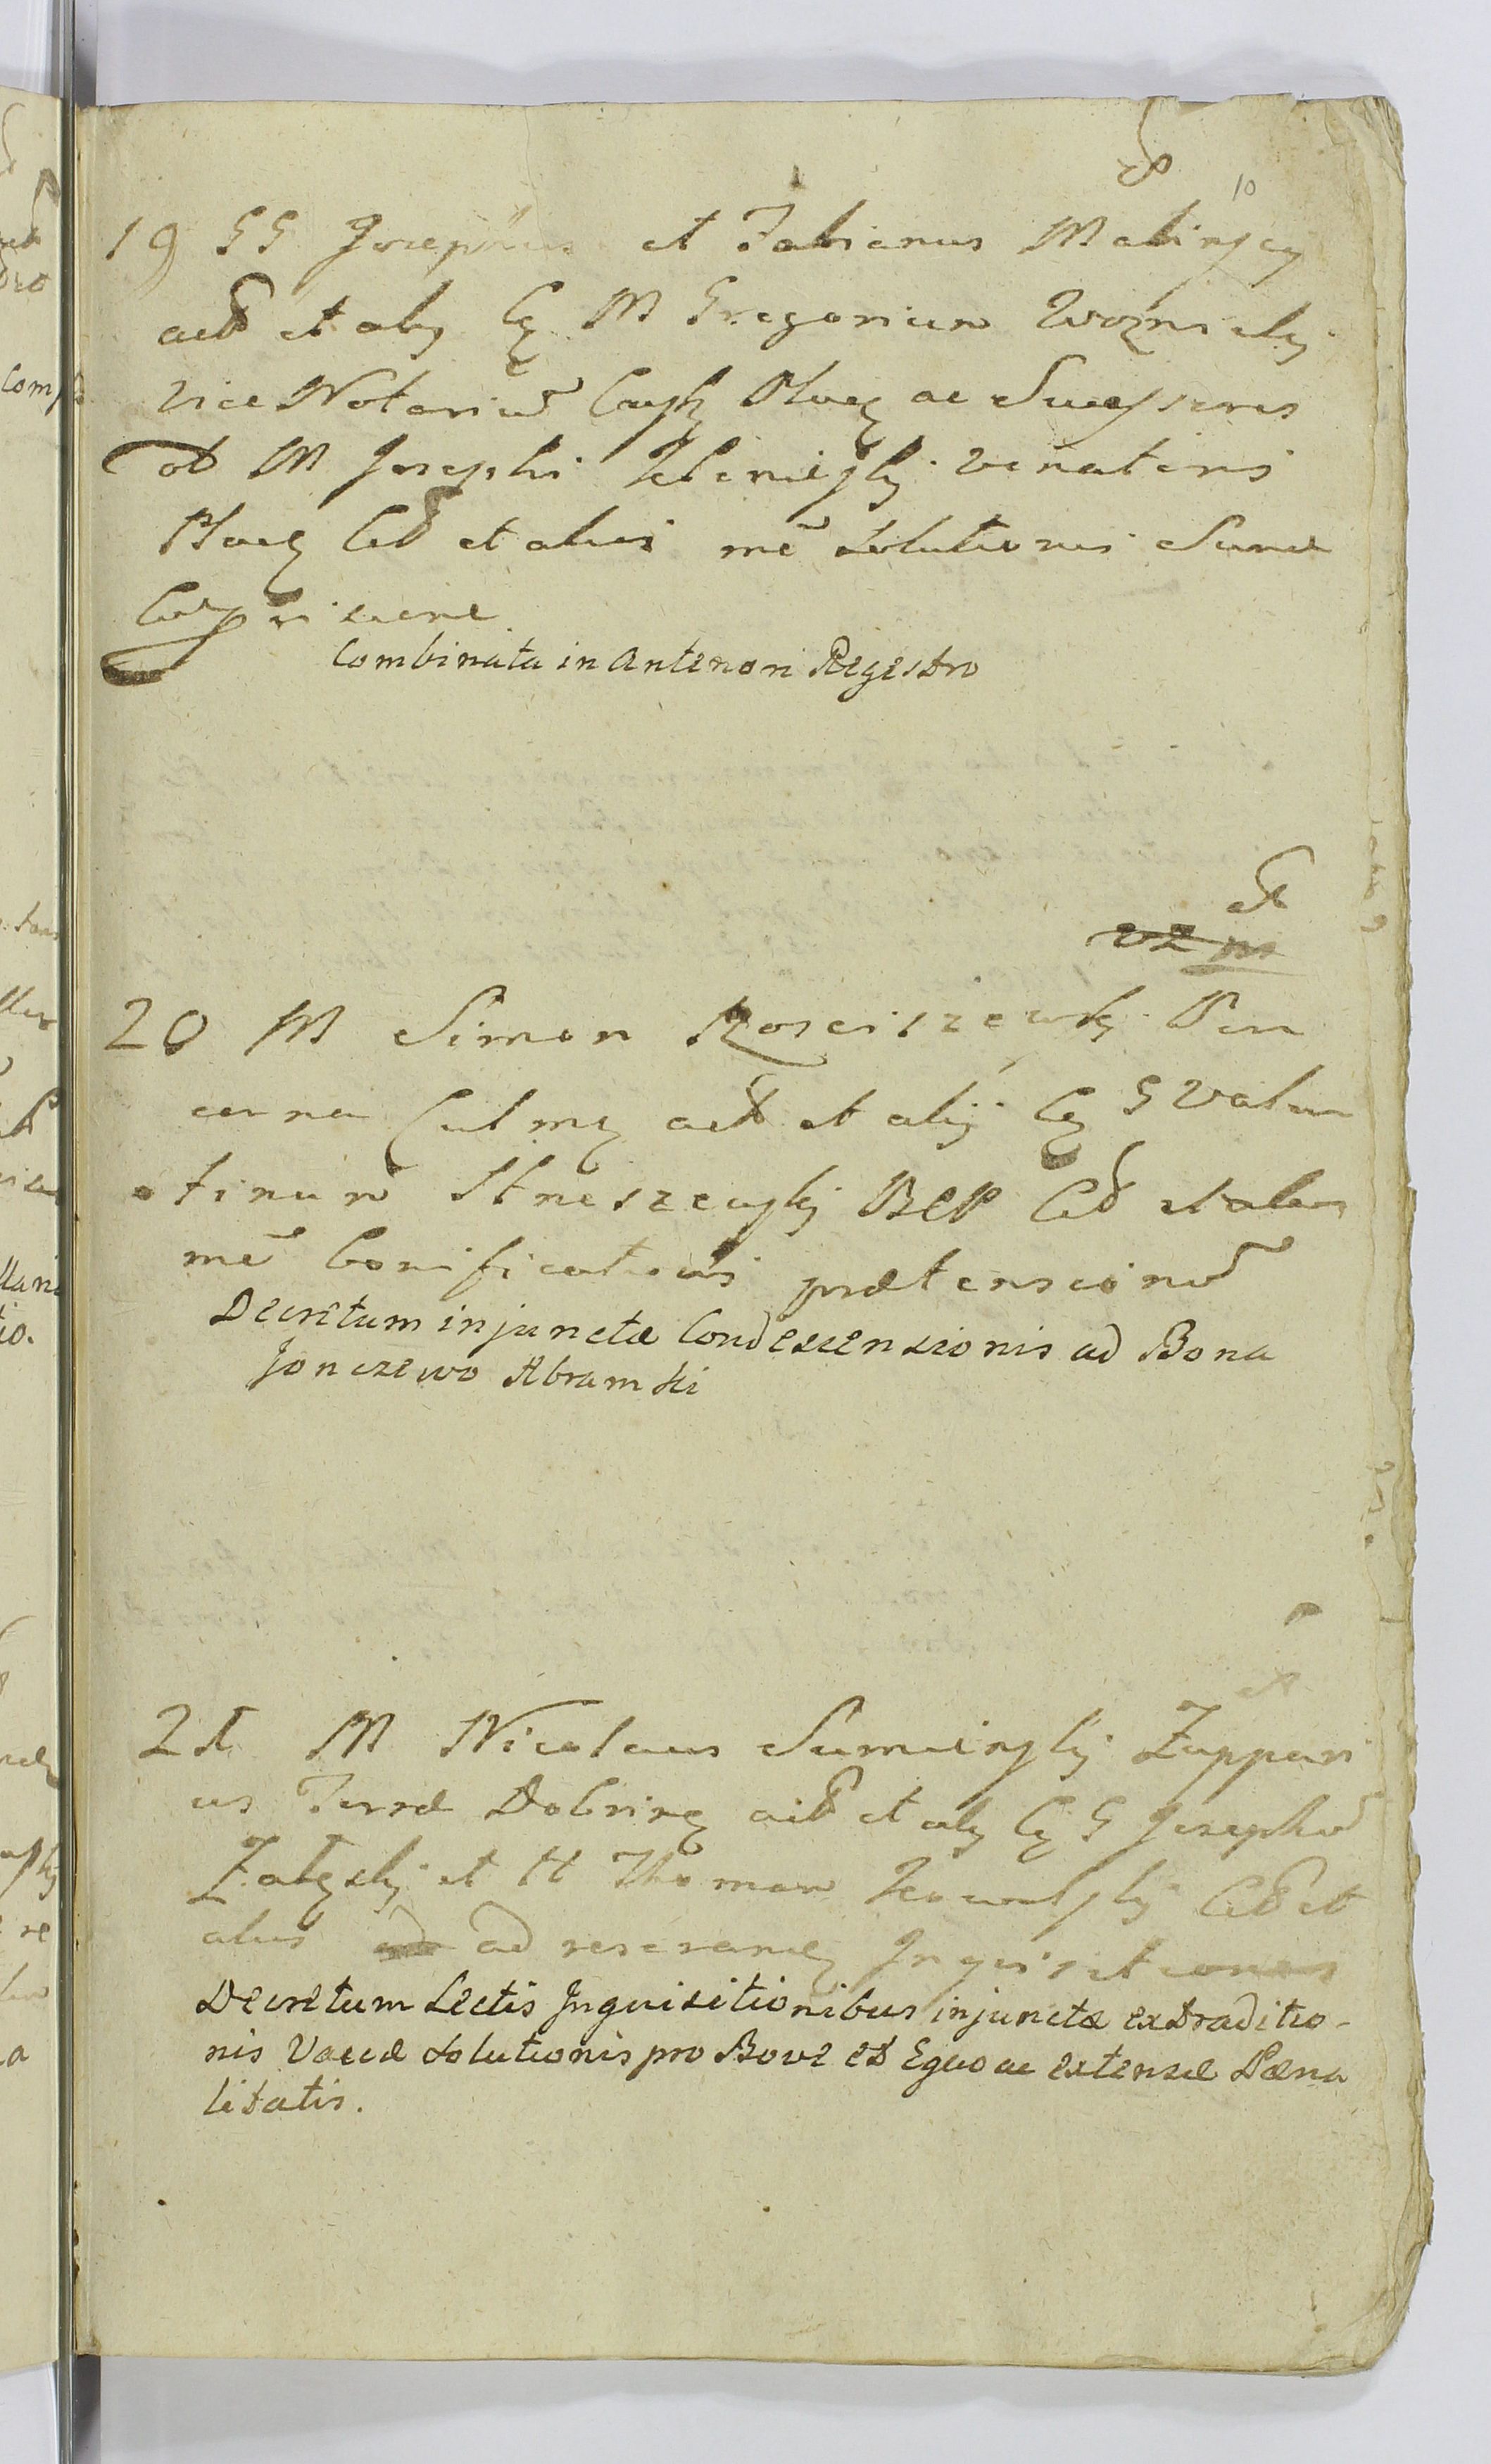 10
19 GG Josephus et Fabianus Malinscy
act et alij Cę M Gregorium Woznicky
vice Notariu Plocę ac Successores
ob M Josephi venatoris
Plocę Cit et alios me solutionis Summae
Compris
Combinata in Anteriori Regestro
et
20 M Simon Rosciszewskj Pin
cerna Culmę act et alij Cę G Valen
tinum Strzeszewskj BCP Cit et alios
me bonificationis praetensionu
Decretum injunctae Condescensionis ad Bona
Jonczewo Abramki
21 M Nicolaus Suminskj Zuppari
us Terrae Dobrinę act et alij Cę G Josephu
Załęskj et H Thomam Cit et
alios ad reseranę Inquisitiones
Decretum Lectis Inquisitionibus injunctae extraditio-
nis Vaccae solutionis pro Bove et Equo ac extensae Paena
litatis.